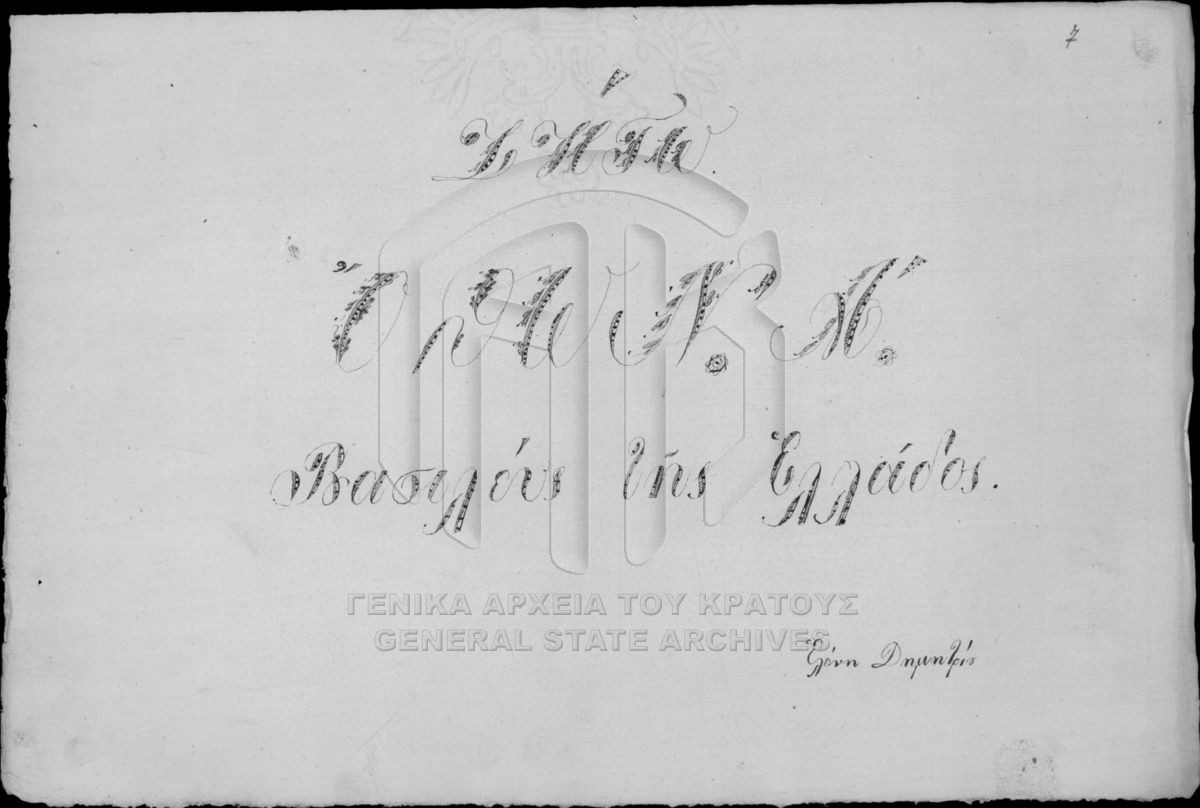 7
ΖΉΤΩ.
Ὄθων. Α΄.
Βασιλέυς τῆς Ἑλλάδος.
ΓΕΝΙΚΑ ΑΡΧΕΙΑ ΤΟΥ ΚΡΑΤΟΥΣ
GENERAL STATE ARCHIVES
Ἑλένη